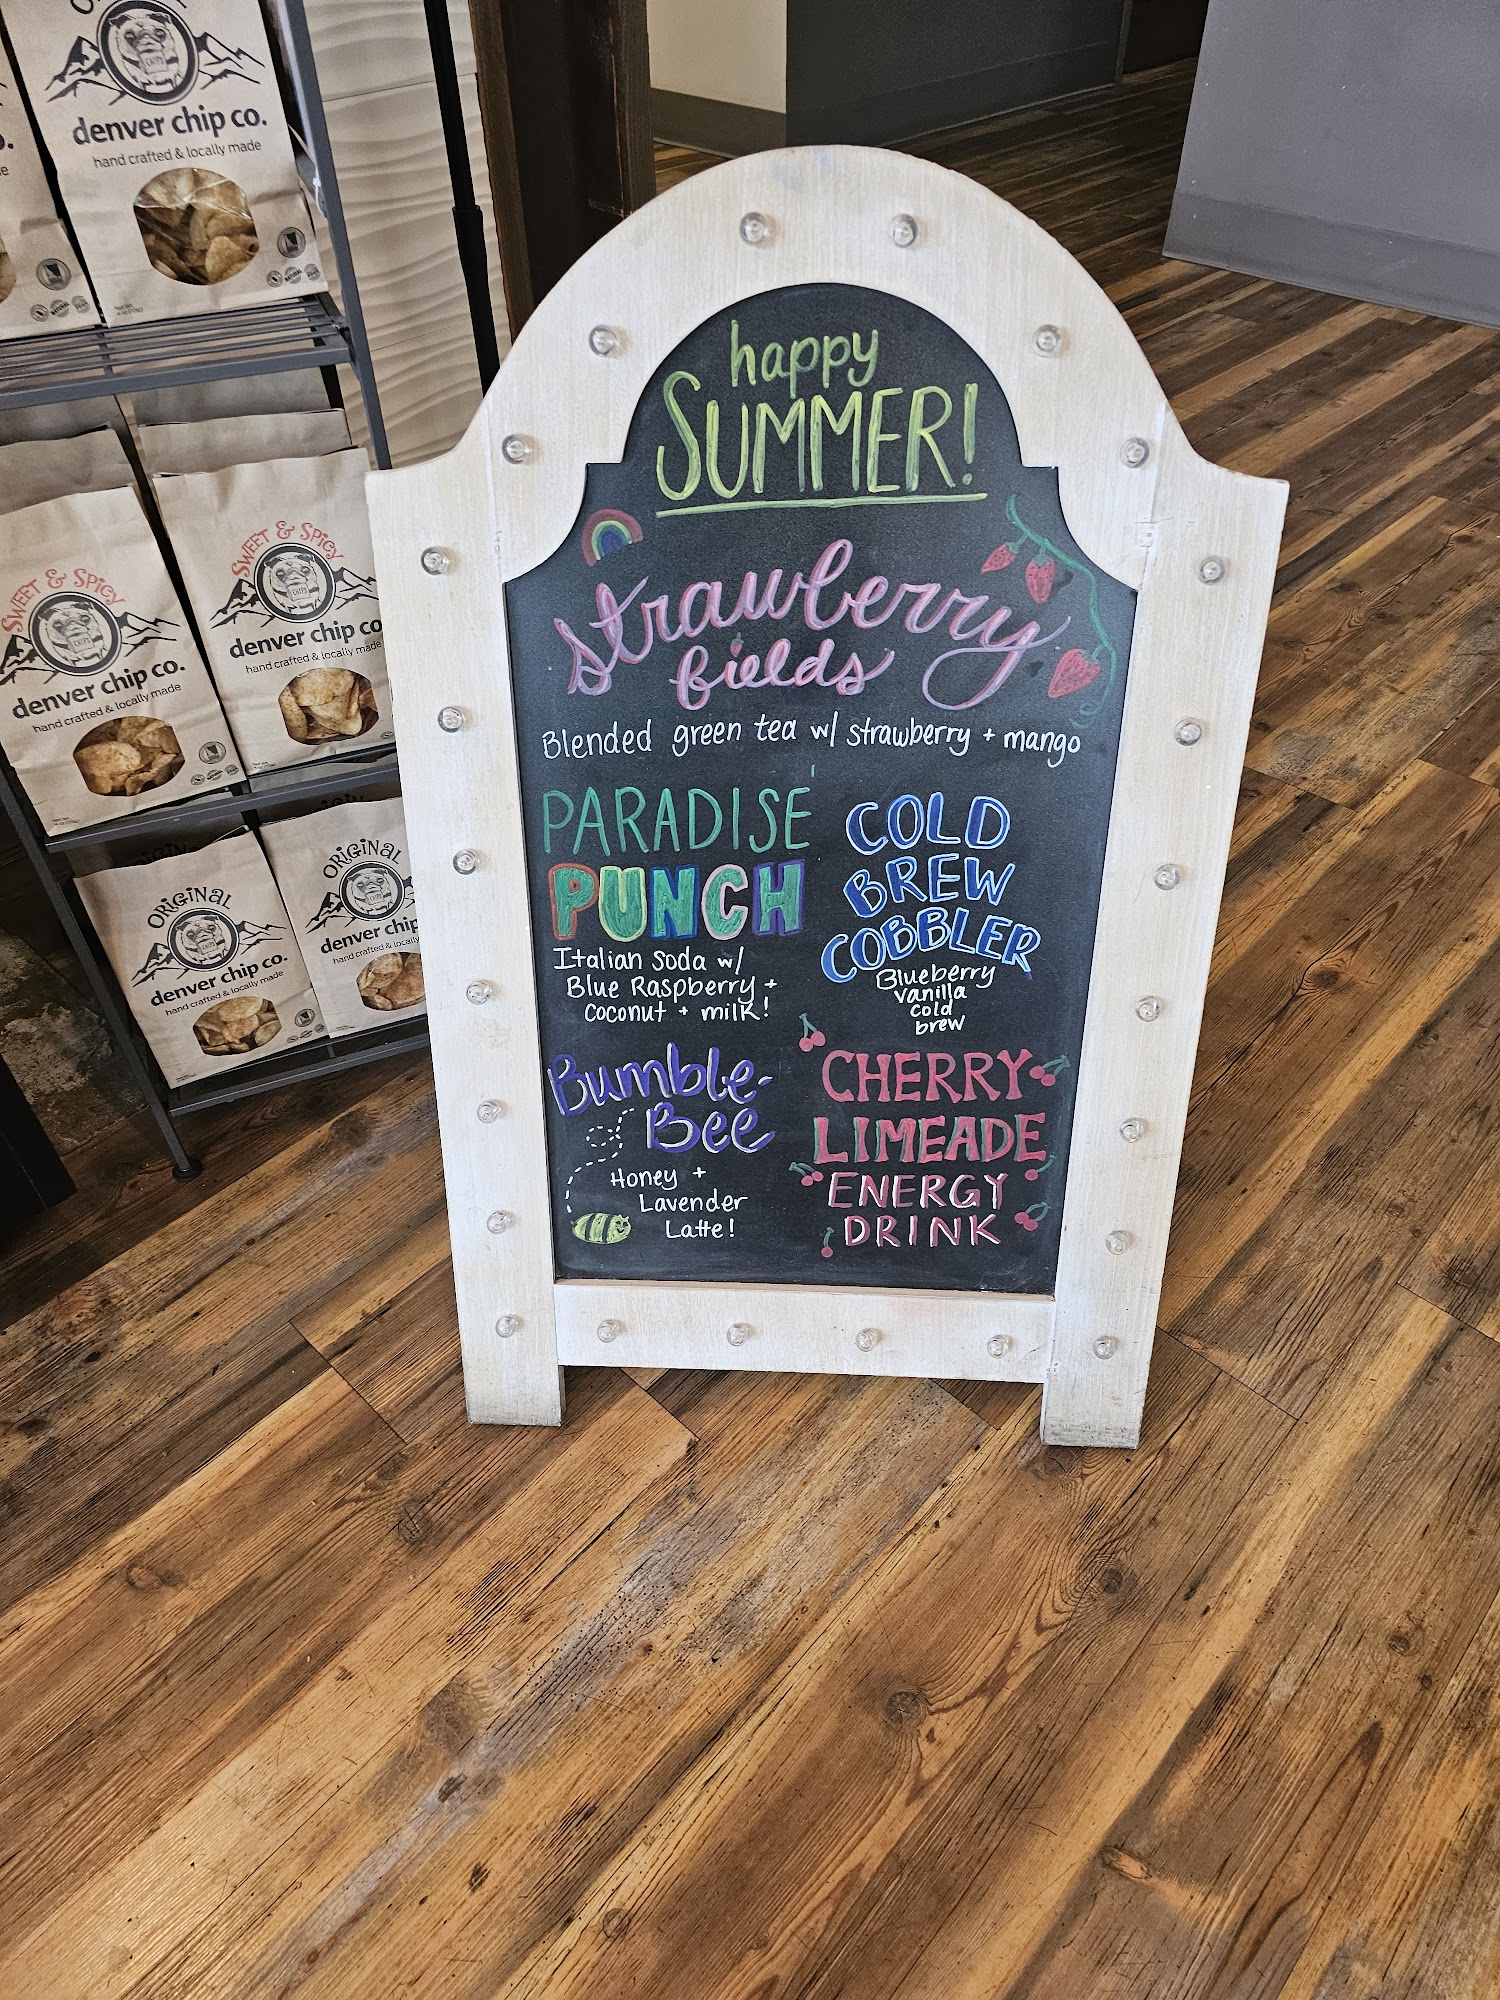 denver chip co.
hand crafted & locally made
SWEET & SPICY
CHIPS
denver chip co.
hand crafted & locally made
SWEET & SPICY
CHIPS
denver chip co
hand crafted & locally made
ORIGINAL
denver chip co.
hand crafted & locally made
ORIGINAL
denver chip
hand crafted & locally
happy
SUMMER!
strawberry
fields
Blended green tea w/ strawberry + mango
PARADISE
PUNCH
Italian soda w/
Blue Raspberry +
coconut + milk!
COLD
BREW
COBBLER
Blueberry
vanilla
cold
brew
Bumble-
Bee
Honey +
Lavender
Latte!
CHERRY
LIMEADE
ENERGY
DRINK